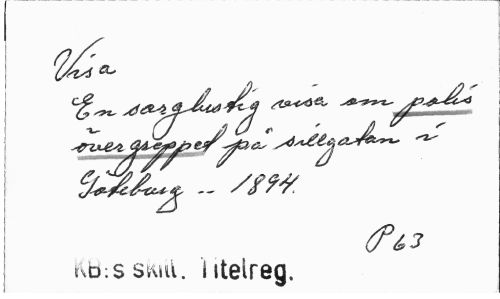 Visa
En sorglustig visa om polis
övergreppet på sillgatan i
Göteborg -- 1894.
P 63
KB:s skill. Titelreg.